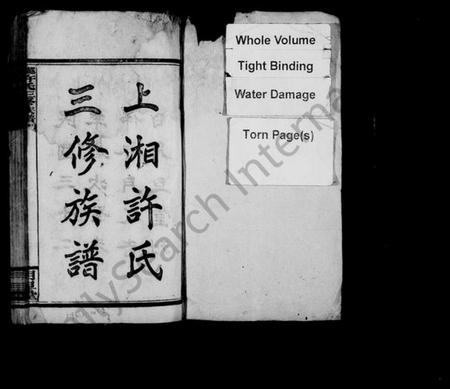 上湘許氏
三修族譜
Whole Volume
Tight Binding
Water Damage
Torn Page(s)